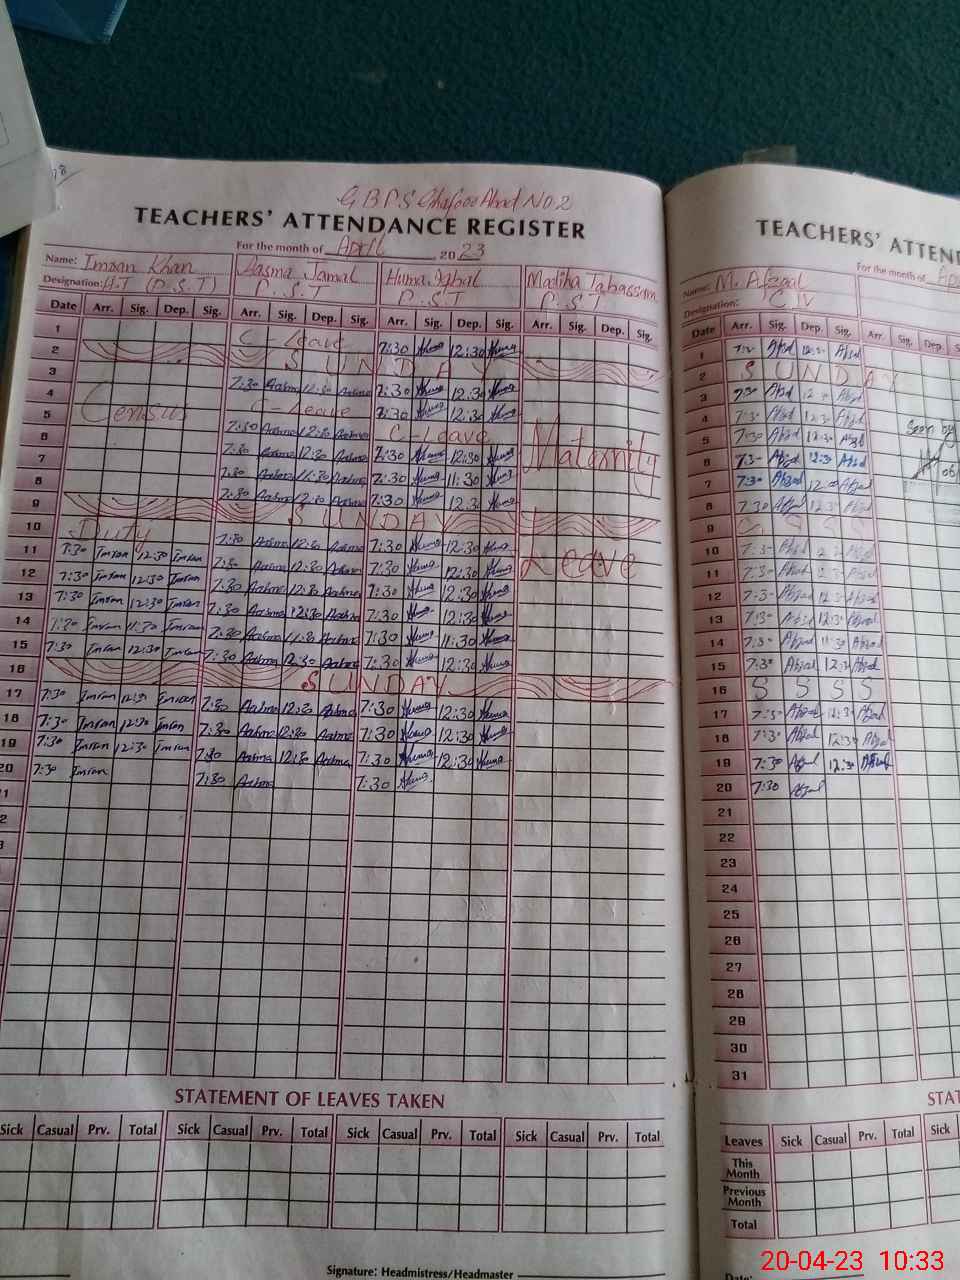 G B P S Ghafoor Abad NO 2
TEACHERS' ATTENDANCE REGISTER
For the month of April 2023
Name: Imran Khan Aasma Jamal Huma Iqbal Madiha Tabassam
Designation: H.T (P.S.T) P.S.T P.S.T P.S.T
Date Arr. Sig. Dep. Sig. Arr. Sig. Dep. Sig. Arr. Sig. Dep. Sig. Arr. Sig. Dep. Sig.
1 C-Leave 7:30 Huma 12:30 Huma
2 S U N D A Y
3 7:30 Aasma 12:30 Aasma 7:30 Huma 12:30 Huma
4 Census C-Leave 7:30 Huma 12:30 Huma
5 7:30 Aasma 12:30 Aasma C-Leave Maternity
6 7:30 Aasma 12:30 Aasma 7:30 Huma 12:30 Huma
7 7:30 Aasma 11:30 Aasma 7:30 Huma 11:30 Huma
8 7:30 Aasma 12:30 Aasma 7:30 Huma 12:30 Huma
9 S U N D A Y
10 Duty 7:30 Aasma 12:30 Aasma 7:30 Huma 12:30 Huma Leave
11 7:30 Imran 12:30 Imran 7:30 Aasma 12:30 Aasma 7:30 Huma 12:30 Huma
12 7:30 Imran 12:30 Imran 7:30 Aasma 12:30 Aasma 7:30 Huma 12:30 Huma
13 7:30 Imran 12:30 Imran 7:30 Aasma 12:30 Aasma 7:30 Huma 12:30 Huma
14 7:30 Imran 11:30 Imran 7:30 Aasma 11:30 Aasma 7:30 Huma 11:30 Huma
15 7:30 Imran 12:30 Imran 7:30 Aasma 12:30 Aasma 7:30 Huma 12:30 Huma
16 S U N D A Y
17 7:30 Imran 12:30 Imran 7:30 Aasma 12:30 Aasma 7:30 Huma 12:30 Huma
18 7:30 Imran 12:30 Imran 7:30 Aasma 12:30 Aasma 7:30 Huma 12:30 Huma
19 7:30 Imran 12:30 Imran 7:30 Aasma 12:30 Aasma 7:30 Huma 12:30 Huma
20 7:30 Imran 7:30 Aasma 7:30 Huma
STATEMENT OF LEAVES TAKEN
Sick Casual Prv. Total Sick Casual Prv. Total Sick Casual Prv. Total Sick Casual Prv. Total
Signature: Headmistress/Headmaster
TEACHERS' ATTEN
For the month of Ap
Name: M. Afzaal
Designation: C IV
Date Arr. Sig. Dep. Sig. Arr. Sig. Dep. S
1 Afzal Afzal
2 S U N D A Y
3 7:30 Afzal 12:30 Afzal
4 7:30 Afzal 12:30 Afzal Seen by
5 7:30 Afzal 12:30 Afzal
6 7:30 Afzal 12:30 Afzal
7 7:30 Afzal Afzal
8 7:30 Afzal 12:30 Afzal
9 S S S S
10 7:30 Afzal Afzal
11 7:30 Afzal 12:30 Afzal
12 7:30 Afzal 12:30 Afzal
13 7:30 Afzal 12:30 Afzal
14 7:30 Afzal 11:30 Afzal
15 7:30 Afzal 12:30 Afzal
16 S S S S
17 7:30 Afzal 12:30 Afzal
18 7:30 Afzal 12:30 Afzal
19 7:30 Afzal 12:30 Afzal
20 7:30 Afzal
21
22
23
24
25
26
27
28
29
30
31
STAT
Leaves Sick Casual Prv. Total Sick
This Month
Previous Month
Total
Date:
20-04-23 10:33